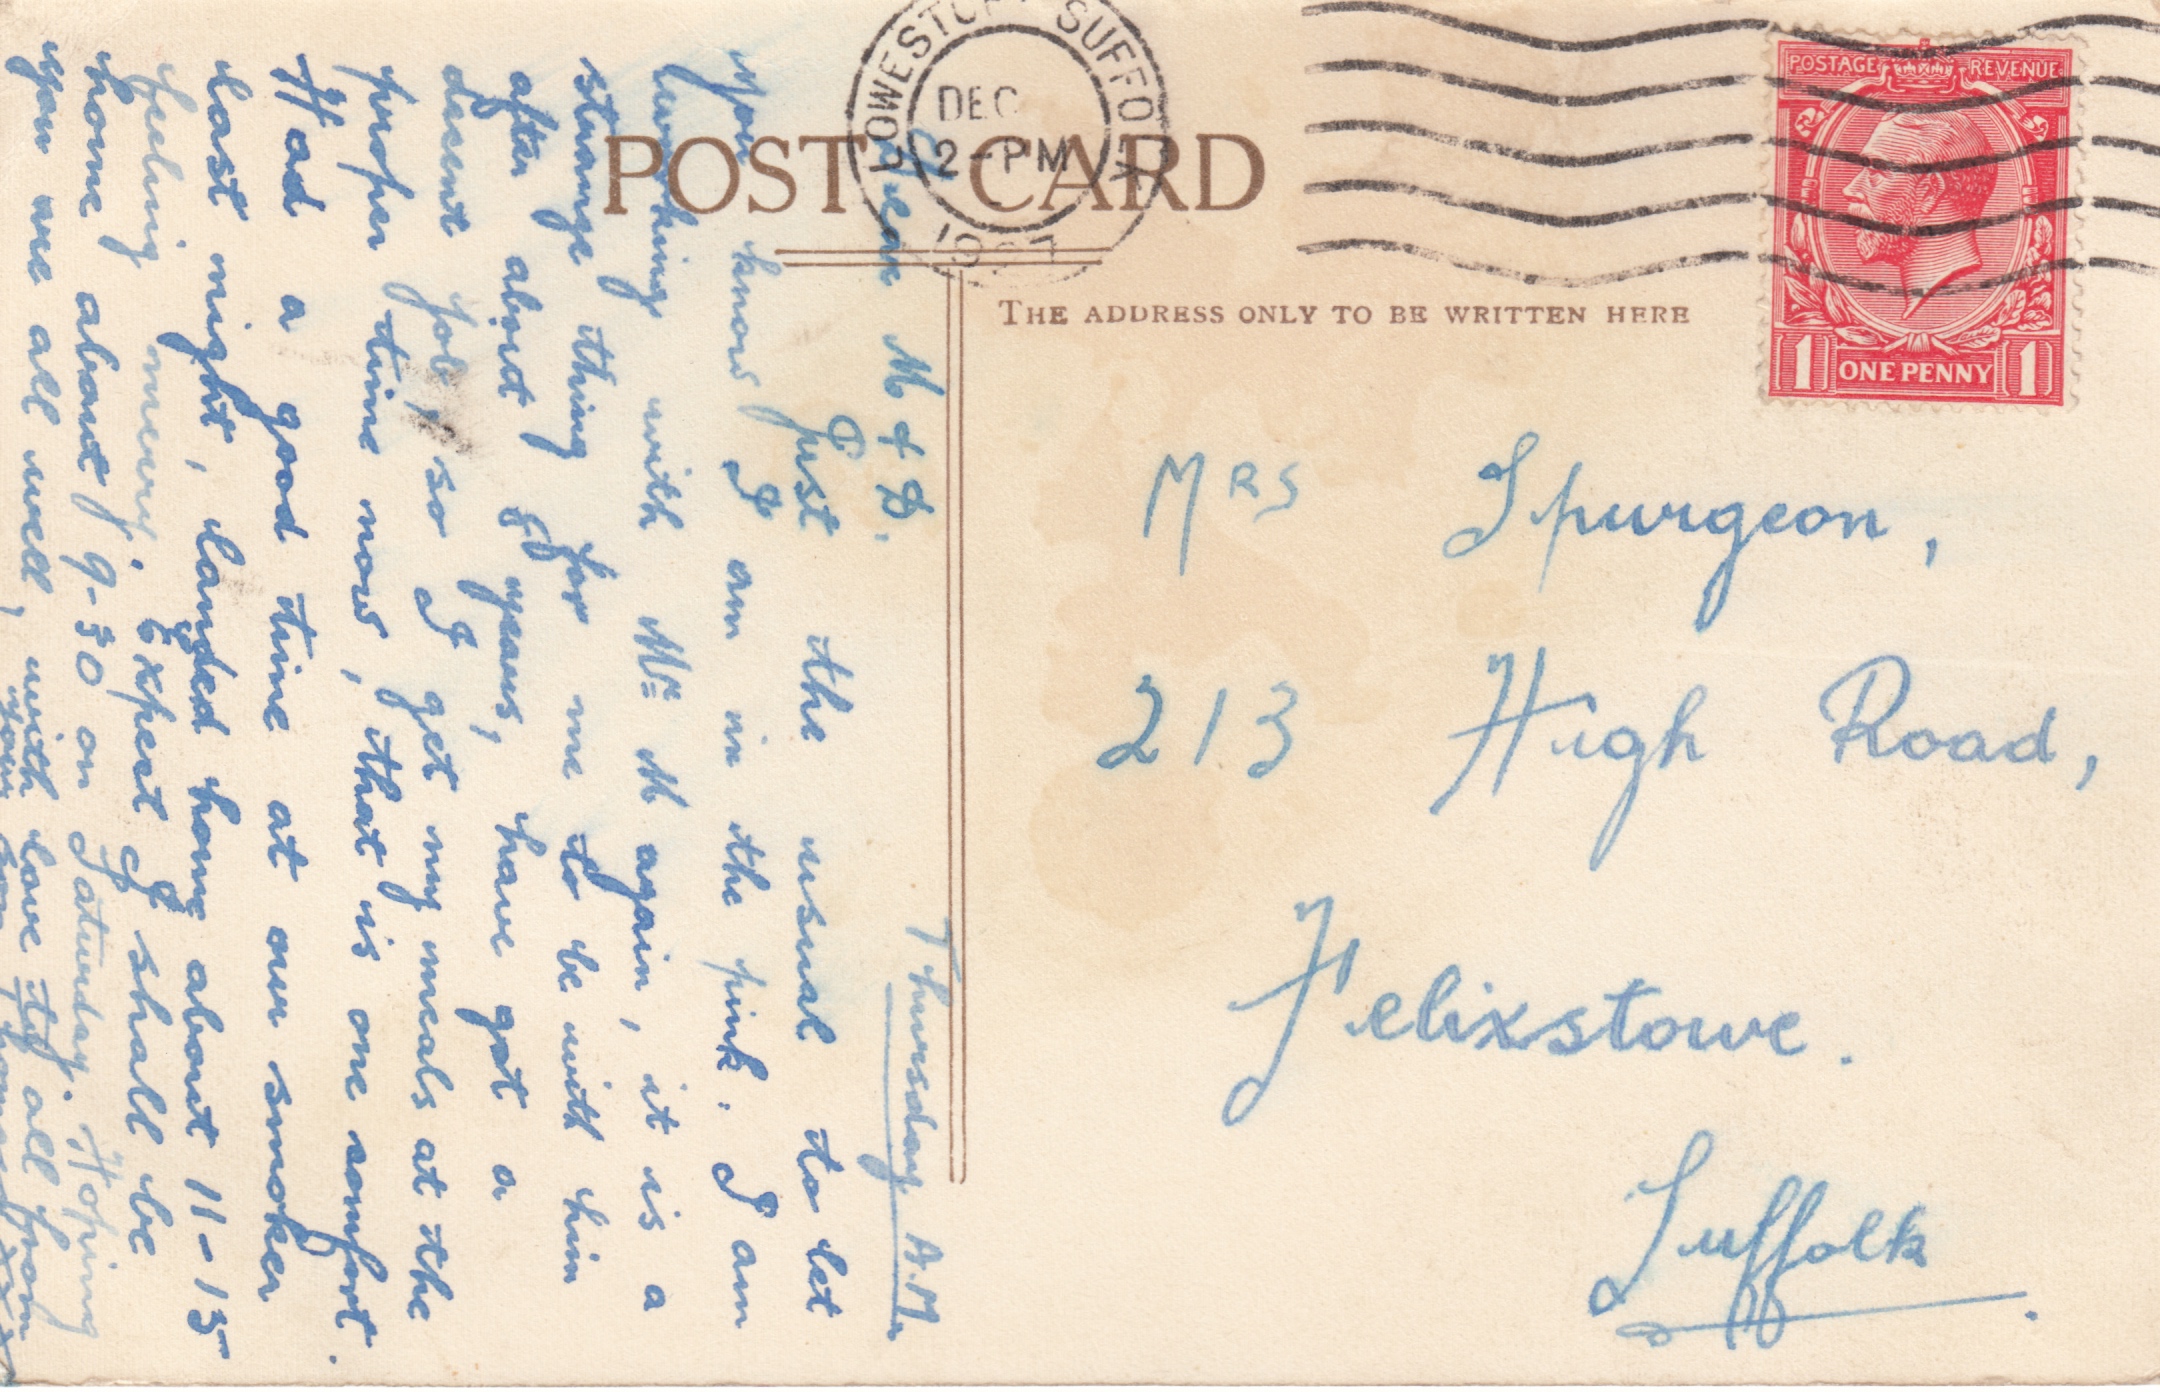 LOWESTOFT SUFFOLK
DEC
2-PM
POST CARD
POSTAGE REVENUE
1 ONE PENNY 1
THE ADDRESS ONLY TO BE WRITTEN HERE
MRS Spurgeon,
213 High Road,
Felixstowe.
Suffolk.
Thursday A.M.
Dear M & D.
Just the usual to let
you know I am in the pink. I am
working with Mr M again, it is a
strange thing for me to be with him
after about 8 years, have got a
decent job, so I get my meals at the
proper time now, that is one comfort.
Had a good time at our smoker
last night, landed home about 11-15
feeling merry. Expect I shall be
home about 9-30 on Saturday. Hoping
you are all well, with love to all from
your